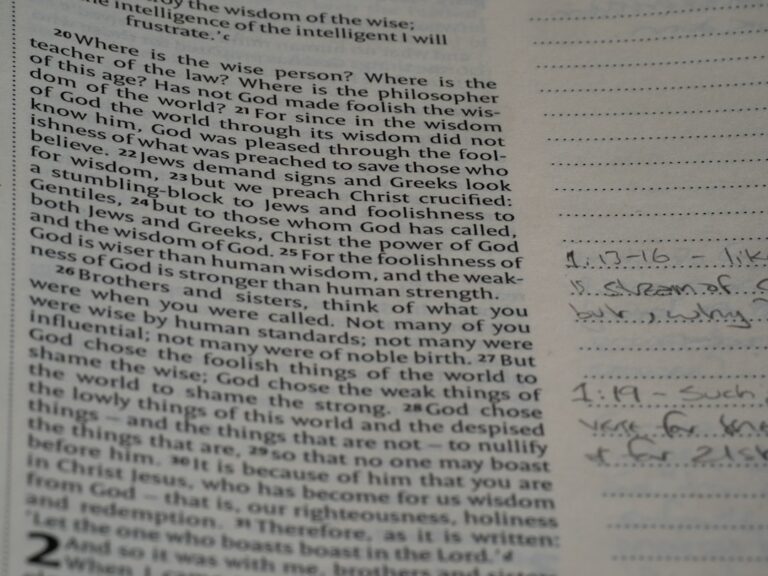 roy the wisdom of the wise;
e intelligence of the intelligent I will
frustrate.'c
20 Where is the wise person? Where is the
teacher of the law? Where is the philosopher
of this age? Has not God made foolish the wis-
dom of the world? 21 For since in the wisdom
of God the world through its wisdom did not
know him, God was pleased through the fool-
ishness of what was preached to save those who
believe. 22 Jews demand signs and Greeks look
for wisdom, 23 but we preach Christ crucified:
a stumbling-block to Jews and foolishness to
Gentiles, 24 but to those whom God has called,
both Jews and Greeks, Christ the power of God
and the wisdom of God. 25 For the foolishness of
God is wiser than human wisdom, and the weak-
ness of God is stronger than human strength.
26 Brothers and sisters, think of what you
were when you were called. Not many of you
were wise by human standards; not many were
influential; not many were of noble birth. 27 But
God chose the foolish things of the world to
shame the wise; God chose the weak things of
the world to shame the strong. 28 God chose
the lowly things of this world and the despised
things – and the things that are not – to nullify
the things that are, 29 so that no one may boast
before him. 30 It is because of him that you are
in Christ Jesus, who has become for us wisdom
from God – that is, our righteousness, holiness
and redemption. 31 Therefore, as it is written:
'Let the one who boasts boast in the Lord.'d
2 And so it was with me, brothers and sister
When I came
1:13-16 - lik
is stream of
but, why?
1:19 - such
verse for
+ for 21st